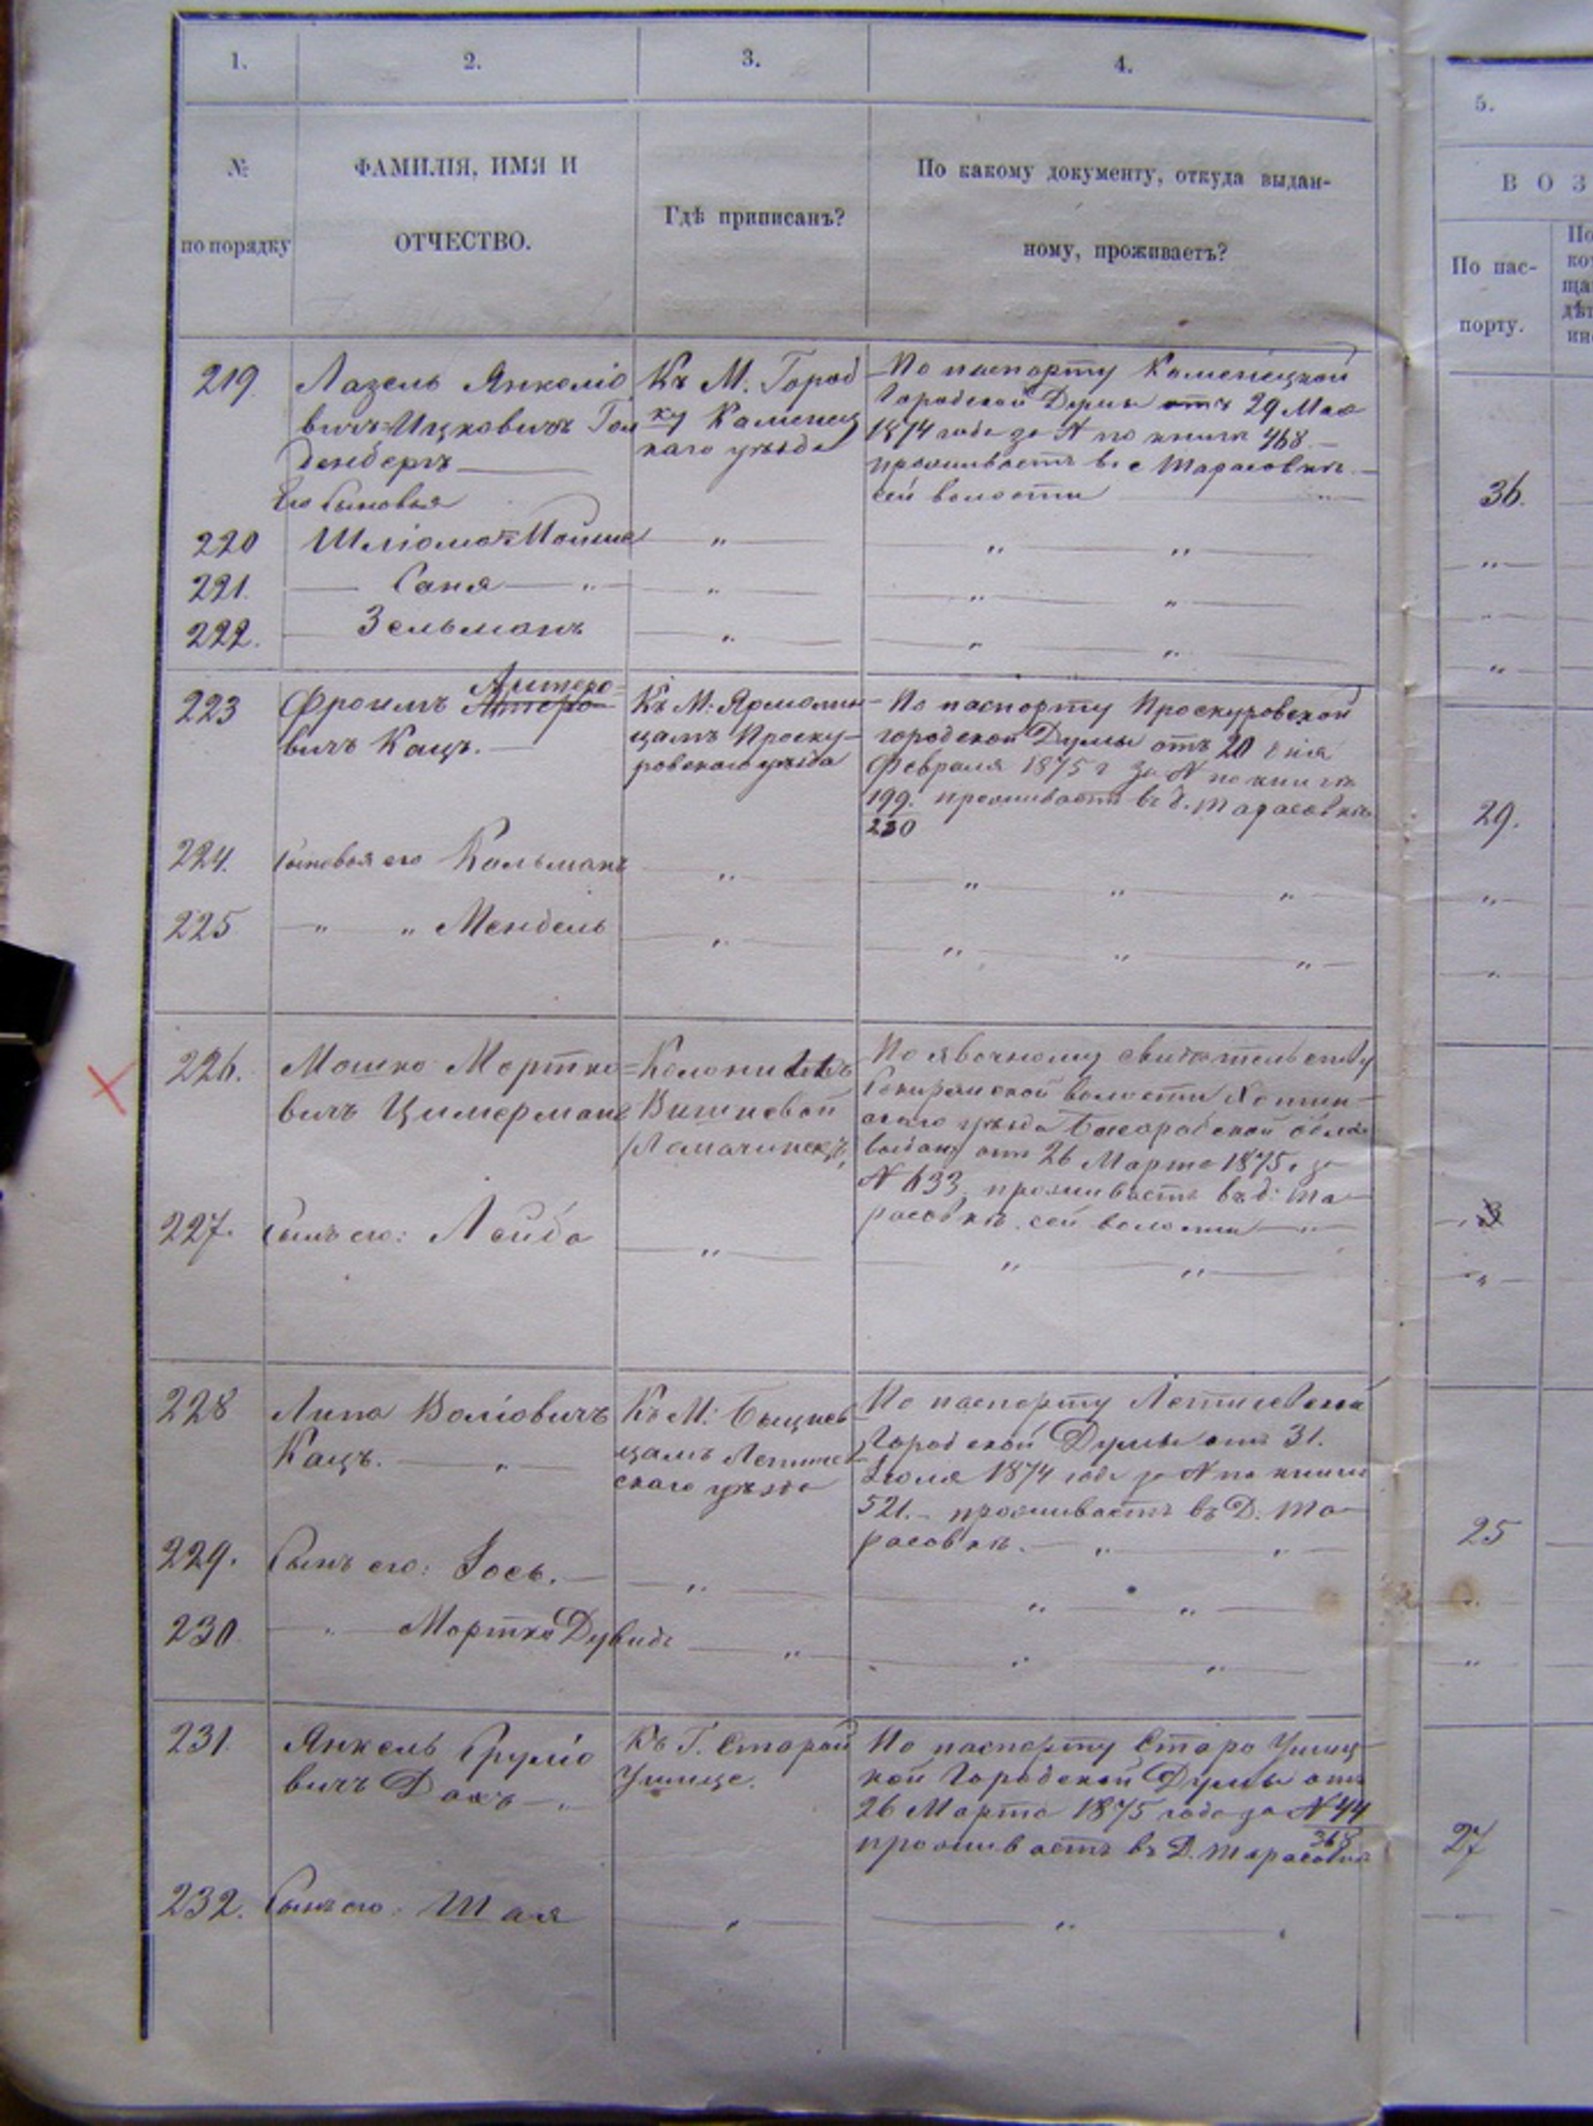 1. 2. 3. 4. 5.
№ по порядку
ФАМИЛІЯ, ИМЯ И
ОТЧЕСТВО.
Гдѣ приписанъ?
По какому документу, откуда выдан-
ному, проживаетъ?
В О З
По пас-
порту.
219. Лазель Янкеліо
вичъ-Ицковичъ Гол
денбергъ
Его сыновья
Къ М. Город
ку Каменец
каго уѣзда
По паспорту Каменецкой
Городской Думы отъ 29 Мая
1874 года за № по книги 468. –
проживаетъ въ с Тарасовкѣ
сей волости
36.
220 Шліома-Мошко " " "
221. Саня " " " "
222. Зельманъ " " "
223 Фроимъ Алтеро-
вичъ Кацъ. —
Къ М: Ярмолин
цамъ Проску-
ровского уѣзда
По паспорту Проскуровской
городской Думы отъ 20 дня
Февраля 1875 г за № по книги
199. проживаетъ въ д. Тарасовкѣ
230
29.
224. Сыновья его Кальманъ " " " "
225 " " Мендель " " " "
226. Мошко Мортко-
вичъ Цимерманъ
Вишневой
По явочному свидѣтельству
волости Хотин-
скаго уѣзда Бесарабской обла
выдану отъ 26 Марта 1875 г за
№ 633, проживаетъ въ д: Та-
расовкѣ сей волости
227. Сынъ его: Лейба " " "
228 Липа Воліовичъ
Кацъ. — "
Къ М:
цамъ Летичев
скаго уѣзда
По паспорту Летичевской
Городской Думы отъ 31.
Іюля 1874 года за № по книги
521. – проживаетъ въ Д: Та-
расовкѣ. — " "
25
229. Сынъ его: Іось. — " " "
230 " Мортко Дувидъ " " "
231. Янкель Сруліо
вичъ Дахъ — "
Къ Г. Старой
Ушице.
По паспорту Старо Ушиц-
кой Городской Думы отъ
26 Марта 1875 года за № 44
368
проживаетъ въ Д. Тарасовкѣ
27
232. Сынъ его: Шая " "